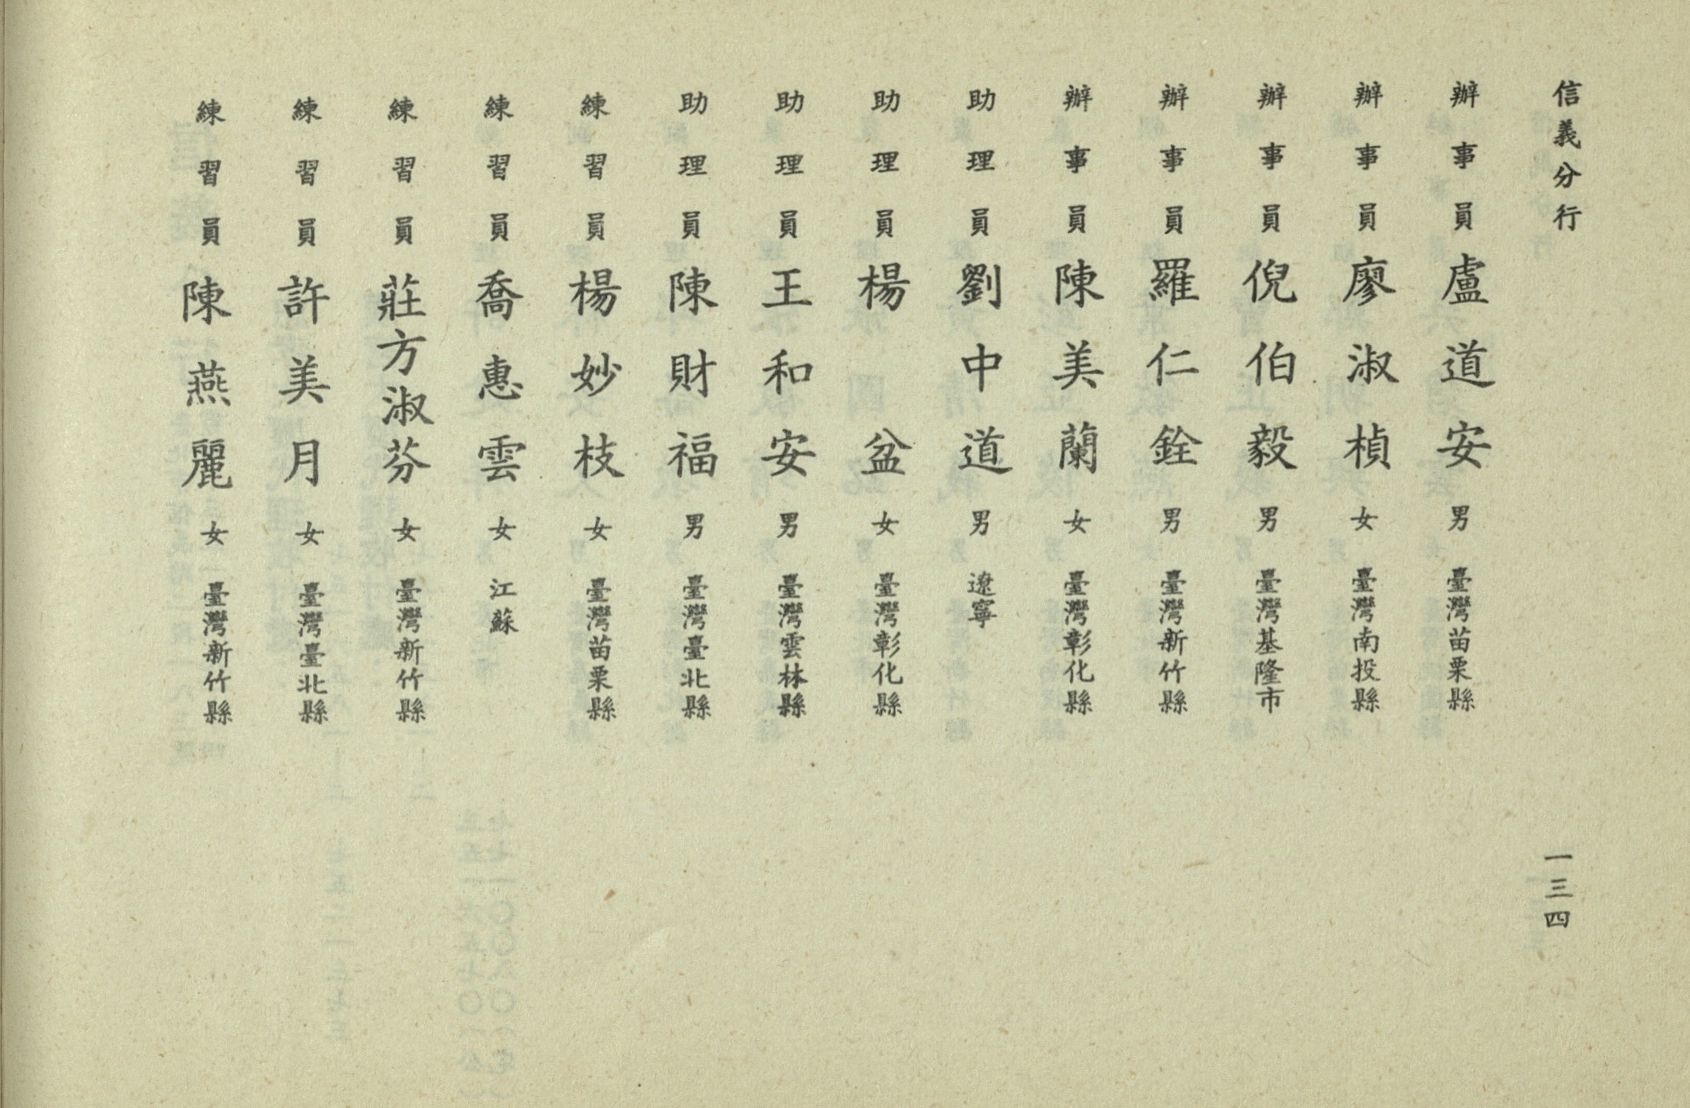 信義分行
辦事員 盧道安 男 臺灣苗栗縣
辦事員 廖淑楨 女 臺灣南投縣
辦事員 倪伯毅 男 臺灣基隆市
辦事員 羅仁銓 男 臺灣新竹縣
辦事員 陳美蘭 女 臺灣彰化縣
助理員 劉中道 男 遼寧
助理員 楊盆 女 臺灣彰化縣
助理員 王和安 男 臺灣雲林縣
助理員 陳財福 男 臺灣臺北縣
練習員 楊妙枝 女 臺灣苗栗縣
練習員 喬惠雲 女 江蘇
練習員 莊方淑芬 女 臺灣新竹縣
練習員 許美月 女 臺灣臺北縣
練習員 陳燕麗 女 臺灣新竹縣
一三四